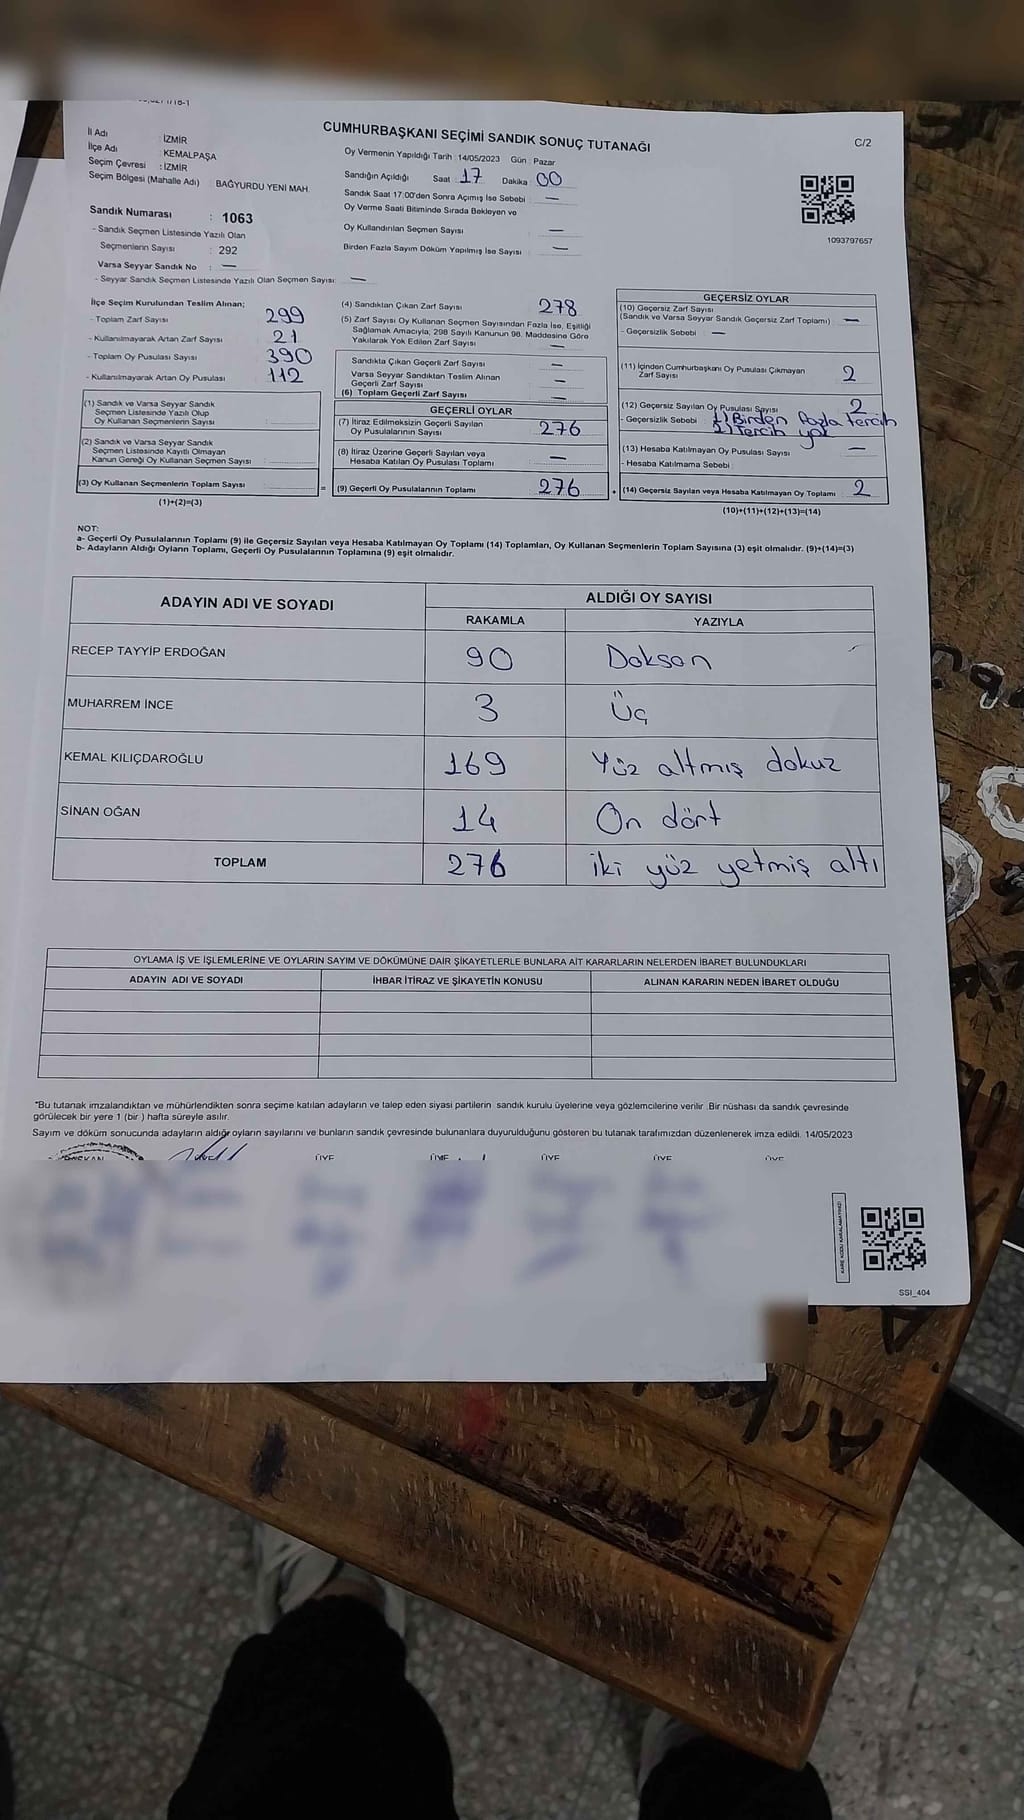 CUMHURBAŞKANI SEÇİMİ SANDIK SONUÇ TUTANAĞI
C/2
İl Adı : İZMİR
İlçe Adı : KEMALPAŞA
Seçim Çevresi : İZMİR
Seçim Bölgesi (Mahalle Adı) : BAĞYURDU YENİ MAH.
Oy Vermenin Yapıldığı Tarih : 14/05/2023 Gün : Pazar
Sandığın Açıldığı Saat 17 Dakika 00
Sandık Saat 17:00'den Sonra Açımış İse Sebebi : —
Oy Verme Saati Bitiminde Sırada Bekleyen ve
Oy Kullandırılan Seçmen Sayısı : —
Birden Fazla Sayım Döküm Yapılmış İse Sayısı : —
1093797657
Sandık Numarası : 1063
- Sandık Seçmen Listesinde Yazılı Olan
Seçmenlerin Sayısı : 292
Varsa Seyyar Sandık No : —
- Seyyar Sandık Seçmen Listesinde Yazılı Olan Seçmen Sayısı: —
İlçe Seçim Kurulundan Teslim Alınan;
- Toplam Zarf Sayısı 299
- Kullanılmayarak Artan Zarf Sayısı 21
- Toplam Oy Pusulası Sayısı 390
- Kullanılmayarak Artan Oy Pusulası 112
(1) Sandık ve Varsa Seyyar Sandık
Seçmen Listesinde Yazılı Olup
Oy Kullanan Seçmenlerin Sayısı :
(2) Sandık ve Varsa Seyyar Sandık
Seçmen Listesinde Kayıtlı Olmayan
Kanun Gereği Oy Kullanan Seçmen Sayısı :
(3) Oy Kullanan Seçmenlerin Toplam Sayısı :
(1)+(2)=(3)
(4) Sandıktan Çıkan Zarf Sayısı 278
(5) Zarf Sayısı Oy Kullanan Seçmen Sayısından Fazla İse, Eşitliği
Sağlamak Amacıyla, 298 Sayılı Kanunun 98. Maddesine Göre
Yakılarak Yok Edilen Zarf Sayısı —
Sandıkta Çıkan Geçerli Zarf Sayısı —
Varsa Seyyar Sandıktan Teslim Alınan
Geçerli Zarf Sayısı —
(6) Toplam Geçerli Zarf Sayısı —
GEÇERLİ OYLAR
(7) İtiraz Edilmeksizin Geçerli Sayılan
Oy Pusulalarının Sayısı 276
(8) İtiraz Üzerine Geçerli Sayılan veya
Hesaba Katılan Oy Pusulası Toplamı —
= (9) Geçerli Oy Pusulalarının Toplamı 276
GEÇERSİZ OYLAR
(10) Geçersiz Zarf Sayısı
(Sandık ve Varsa Seyyar Sandık Geçersiz Zarf Toplamı) : —
- Geçersizlik Sebebi : —
(11) İçinden Cumhurbaşkanı Oy Pusulası Çıkmayan
Zarf Sayısı 2
(12) Geçersiz Sayılan Oy Pusulası Sayısı 2
- Geçersizlik Sebebi : 1) Birden fazla tercih
2) Tercih yok
(13) Hesaba Katılmayan Oy Pusulası Sayısı —
- Hesaba Katılmama Sebebi :
+ (14) Geçersiz Sayılan veya Hesaba Katılmayan Oy Toplamı 2
(10)+(11)+(12)+(13)=(14)
NOT:
a- Geçerli Oy Pusulaların Toplamı (9) ile Geçersiz Sayılan veya Hesaba Katılmayan Oy Toplamı (14) Toplamları, Oy Kullanan Seçmenlerin Toplam Sayısına (3) eşit olmalıdır. (9)+(14)=(3)
b- Adayların Aldığı Oyların Toplamı, Geçerli Oy Pusulalarının Toplamına (9) eşit olmalıdır.
ADAYIN ADI VE SOYADI
ALDIĞI OY SAYISI
RAKAMLA YAZIYLA
RECEP TAYYİP ERDOĞAN 90 Doksan
MUHARREM İNCE 3 Üç
KEMAL KILIÇDAROĞLU 169 Yüz altmış dokuz
SİNAN OĞAN 14 On dört
TOPLAM 276 iki yüz yetmiş altı
OYLAMA İŞ VE İŞLEMLERİNE VE OYLARIN SAYIM VE DÖKÜMÜNE DAİR ŞİKAYETLERLE BUNLARA AİT KARARLARIN NELERDEN İBARET BULUNDUKLARI
ADAYIN ADI VE SOYADI İHBAR İTİRAZ VE ŞİKAYETİN KONUSU ALINAN KARARIN NEDEN İBARET OLDUĞU
*Bu tutanak imzalandıktan ve mühürlendikten sonra seçime katılan adayların ve talep eden siyasi partilerin sandık kurulu üyelerine veya gözlemcilerine verilir .Bir nüshası da sandık çevresinde
görülecek bir yere 1 (bir ) hafta süreyle asılır.
Sayım ve döküm sonucunda adayların aldığı oyların sayılarını ve bunların sandık çevresinde bulunanlara duyurulduğunu gösteren bu tutanak tarafımızdan düzenlenerek imza edildi. 14/05/2023
BAŞKAN ÜYE ÜYE ÜYE ÜYE ÜYE
KARE KODU KARALAMAYINIZ!
SSI_404